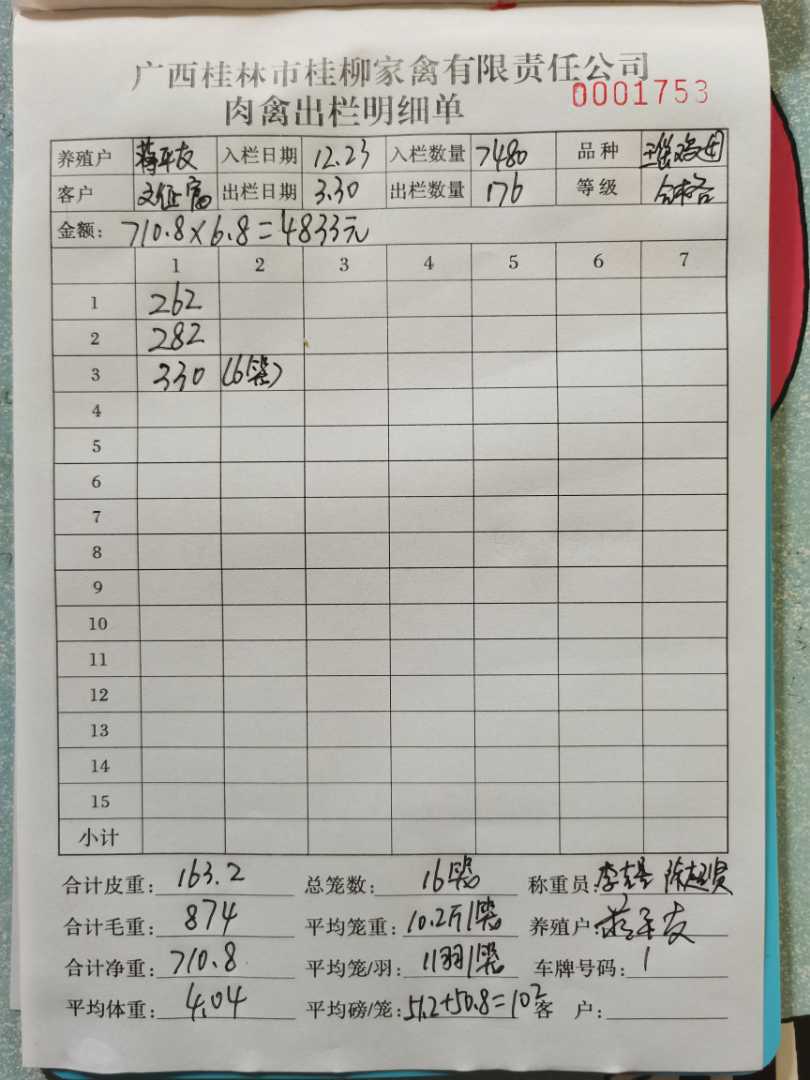 广西桂林市桂柳家禽有限责任公司
肉禽出栏明细单 0001753
养殖户 蒋平友 入栏日期 12.23 入栏数量 7480 品种
客户 出栏日期 3.30 出栏数量 176 等级 合格
金额: 710.8×6.8=4833元
1 2 3 4 5 6 7
1 262
2 282
3 330 (6笼)
4
5
6
7
8
9
10
11
12
13
14
15
小计
合计皮重: 163.2 总笼数: 16笼 称重员:
合计毛重: 874 平均笼重: 10.2斤/笼 养殖户: 蒋平友
合计净重: 710.8 平均笼/羽: 11羽/笼 车牌号码: 1
平均体重: 4.04 平均磅/笼: 51.2+50.8=102 客 户: